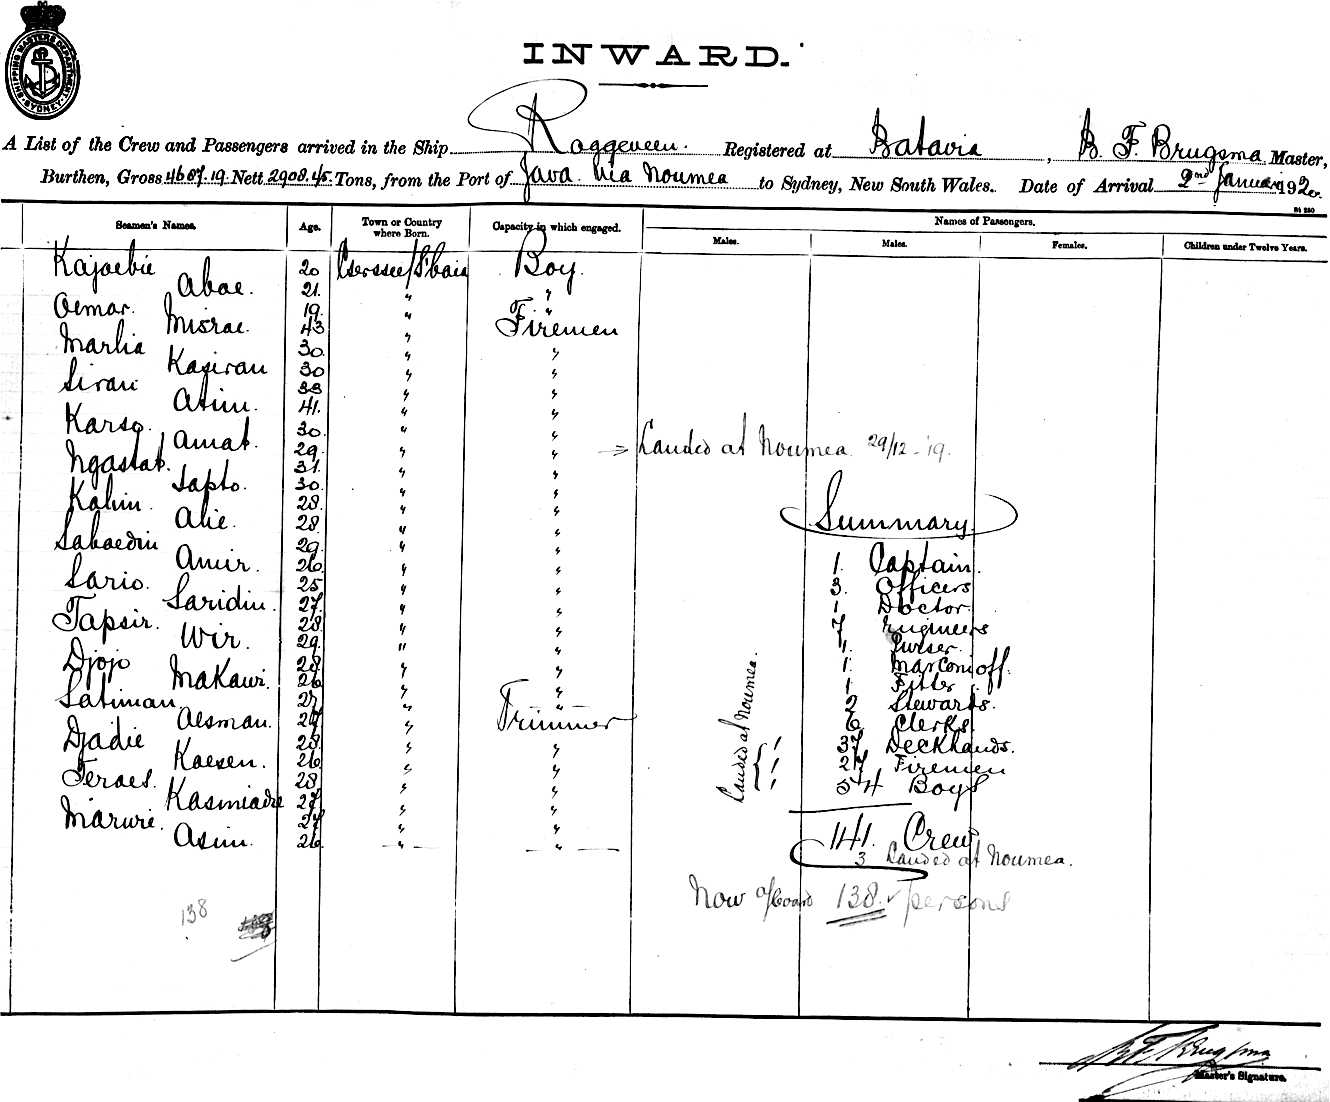 SHIPPING MASTERS DEPARTMENT SYDNEY
INWARD.
A List of the Crew and Passengers arrived in the Ship Roggeveen. Registered at Batavia, B. F. Brugsma Master,
Burthen, Gross 4687.19 Nett 2908.45 Tons, from the Port of Java via Noumea to Sydney, New South Wales. Date of Arrival 2nd January 1920
Seamen's Names. Age. Town or Country where Born. Capacity in which engaged. Names of Passengers.
Males. Males. Females. Children under Twelve Years.
Kajoebie 20 Boy.
Aboe. 21. " "
Oemar. 19. " "
Misrae. 43 " Firemen
Marlia 30. " "
Kasiran 30 " "
Siran 33 " "
Asim. 41. " "
Karso. 30. " "
Amat. 29. " " Landed at Noumea 29/12-'19.
Ngastab. 31. " "
Sapto. 30. " "
Kalim. 28. " "
Alie. 28. " "
Sabaedin 29. " "
Amir. 26. " "
Sario. 25 " "
Saridin. 27. " "
Tapsir. 28. " "
Wir. 29. " "
Djojo 28. " "
Makawi. 26. " "
Satiman. 27. " "
Oesman. 27 " Trimmer
Djadie 28. " "
Kaesen. 26 " "
Feraes. 28. " "
Kasmiadie 27. " "
Marwie. 27. " "
Asim. 26. " "
Summary
1. Captain.
3. Officers
1. Doctor.
7 Engineers
1. Purser.
1. Marconi off.
1 Fitter
2 Stewards.
6 Clerks.
37 Deckhands.
27 Firemen
54 Boys
Landed at Noumea.
1
1
1
141. Crew
3 Landed at Noumea.
Now o/board 138 persons
138
Master's Signature.